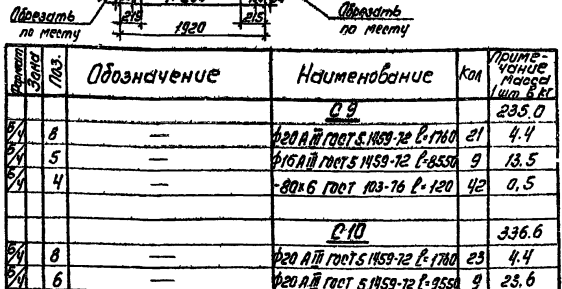 Обрезать
по месту
215
215
1920
Обрезать
по месту
Формат Зона Поз. Обозначение Наименование Кол Примечание Масса 1 шт. в кг
С 9 235.0
Б/ч 8 — ф20 А III ГОСТ 5.1459-72 ℓ=1760 21 4.4
Б/ч 5 — ф16 А III ГОСТ 5.1459-72 ℓ=8550 9 13.5
Б/ч 4 — -80×6 ГОСТ 103-76 ℓ=120 42 0,5
С-10 336.6
Б/ч 8 — ф20 А III ГОСТ 5.1459-72 ℓ=1760 23 4.4
Б/ч 6 — ф20 А III ГОСТ 5.1459-72 ℓ=9550 9 23,6